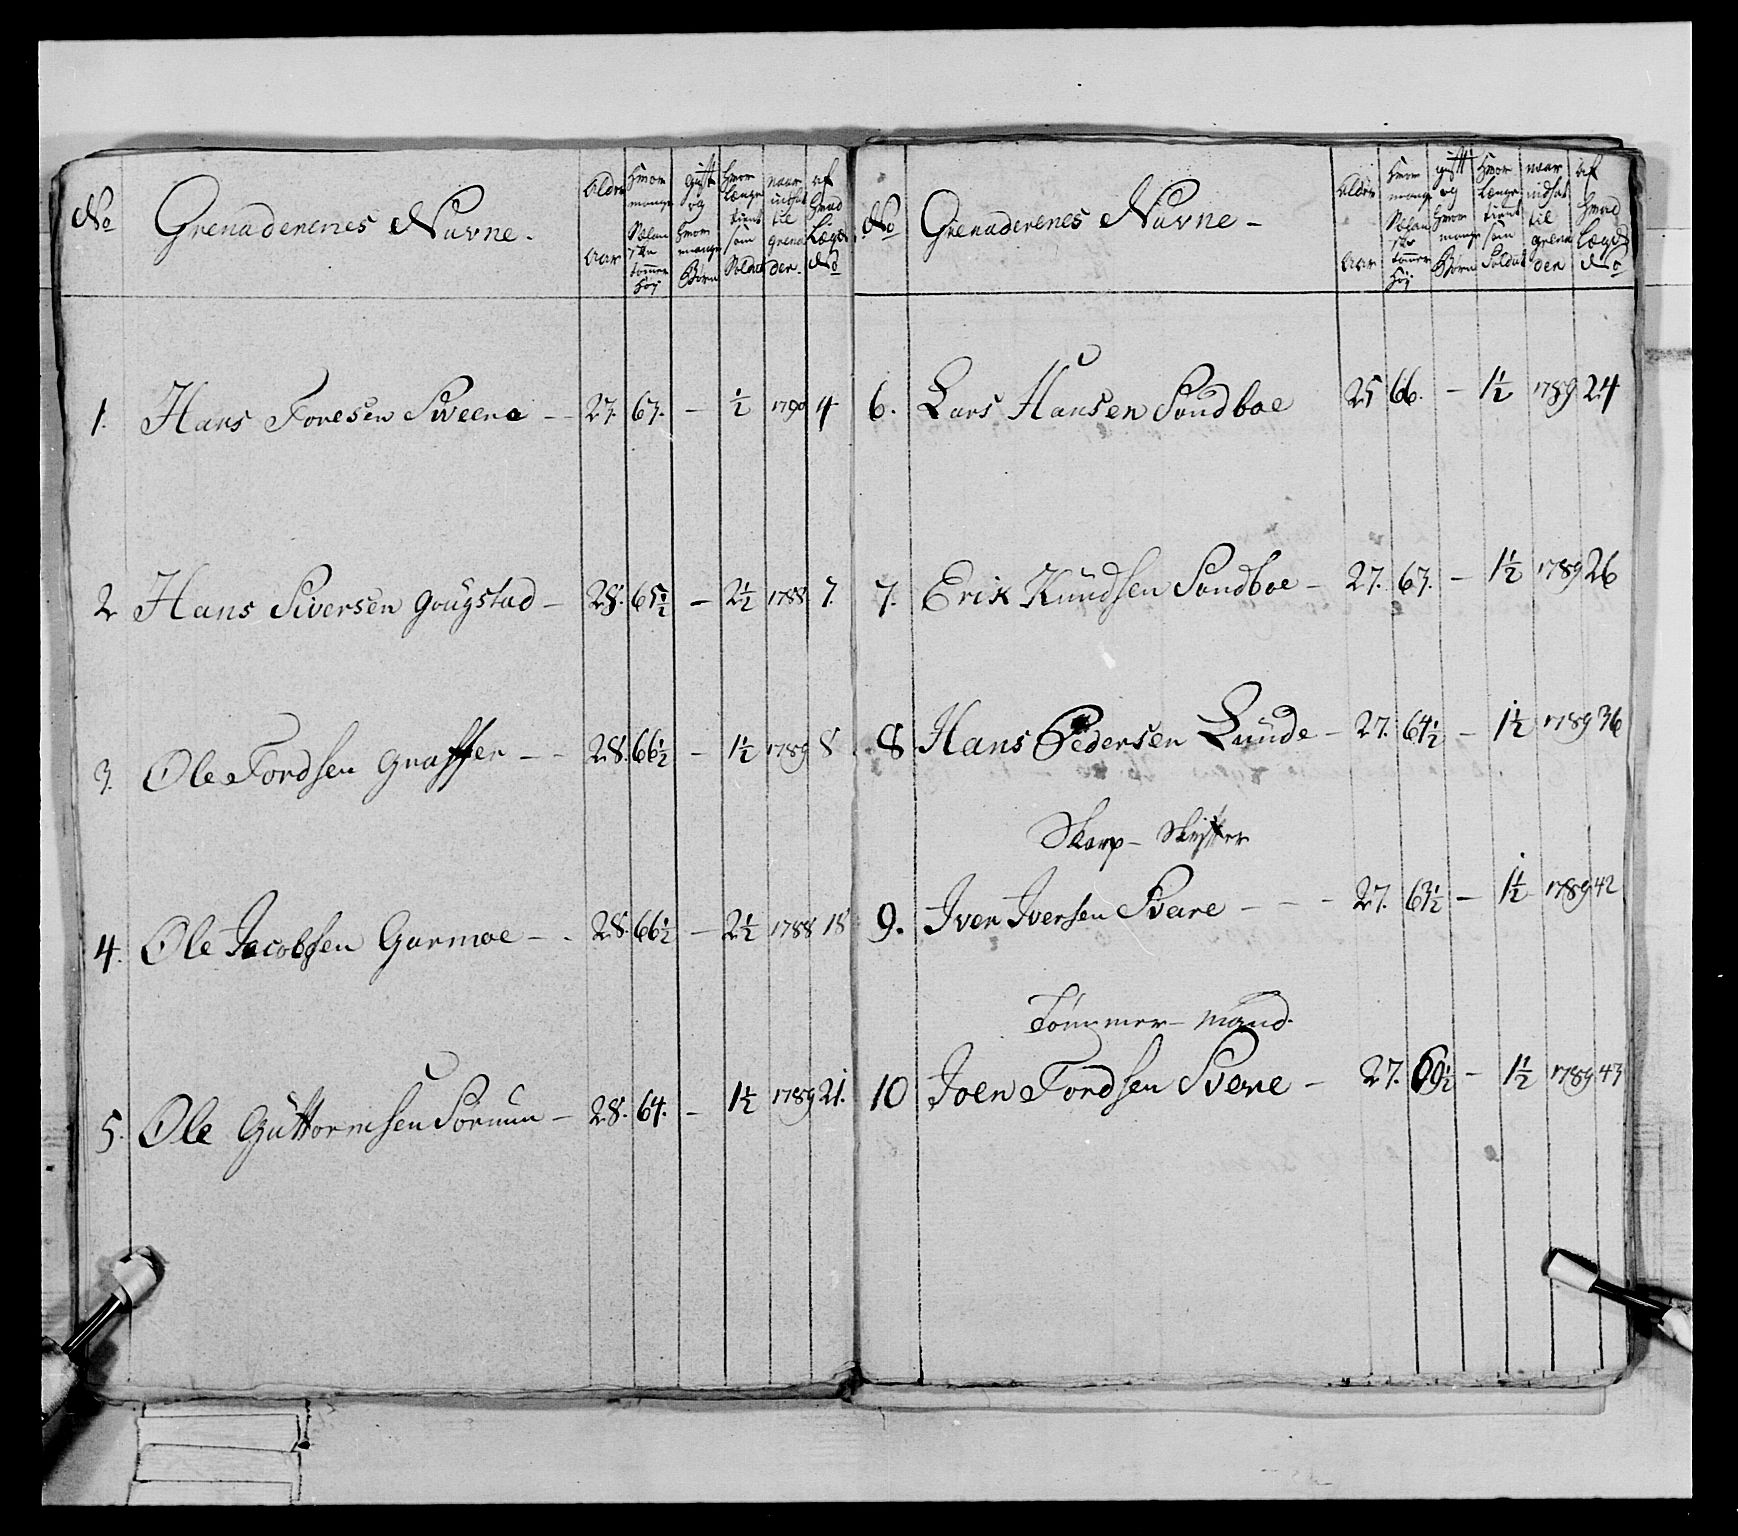 No Grenaderenes Navne - Alder Aar Hvor mange Siælan ske tommer høy gift og Hvor mange Børn Hvor Længe tient som Soldat naar indsat til grena den af Hvad Lægd No
1. Hans Foresen Sveene - - 27. 67. - ½ 1790 4
2 Hans Siversen gougstad - 28. 65½ - 2½ 1788 7.
3. Ole Tordsen graffer - - 28. 66½ - 1½ 1789 8
4. Ole Jacobsen Garmoe - - 28. 66½ - 2½ 1788 18
5. Ole Guttormsen Sorum - 28. 64. - 1½ 1789 21.
No Grenaderenes Navne - Alder Aar Hvor mange Siælan ske tommer høy gift og Hvor mange Børn Hvor Længe tient som Soldat naar indsat til grena den af Hvad Lægd No
6. Lars Hansen Sandboe 25 66. - 1½ 1789 24
7. Erik Knudsen Sandboe - 27. 67. - 1½ 1789 26
8 Hans Pedersen Lunde - 27. 64½ - 1½ 1789 36
Skarp - Skytter
9. Iver Iversen Svare - - - 27. 63½ - 1½ 1789 42
Tømmer - mand.
10 Joen Tordsen Svere - 27. 69½ - 1½ 1789 43